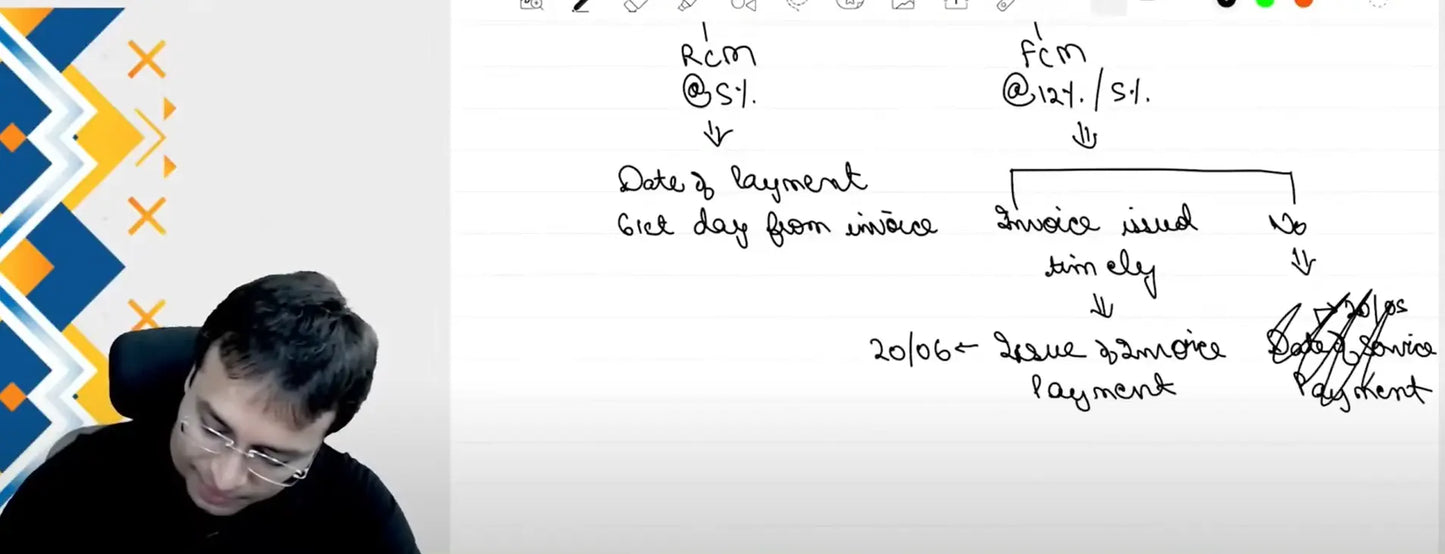 RCM
@5%.
Date of Payment
61st day from invoice
FCM
@12%./5%.
Invoice issued
timely
20/06 ← Issue of Invoice
Payment
No
20/05
Date of Service
Payment